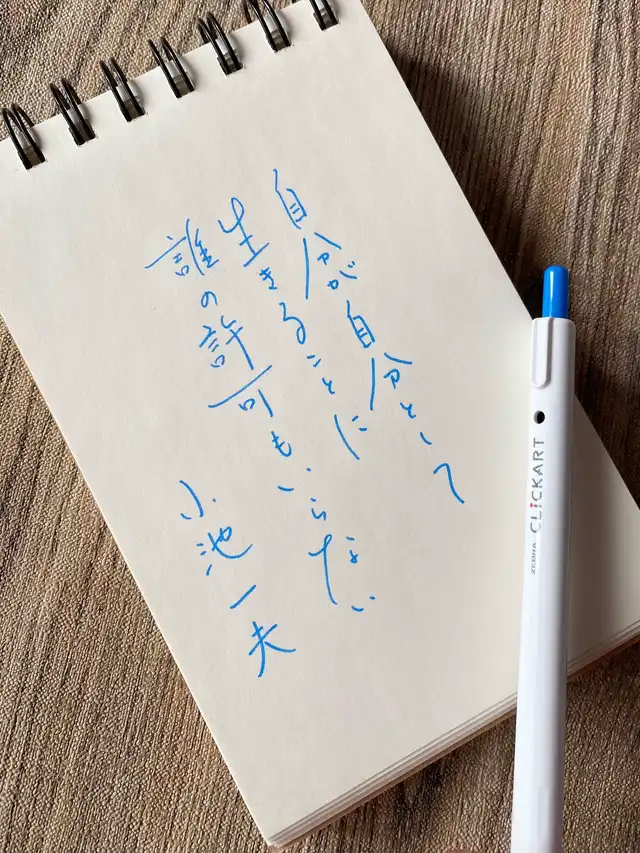 自分が自分として
生きることに
誰の許可もいらない
小池一夫
ZEBRA CLiCKART